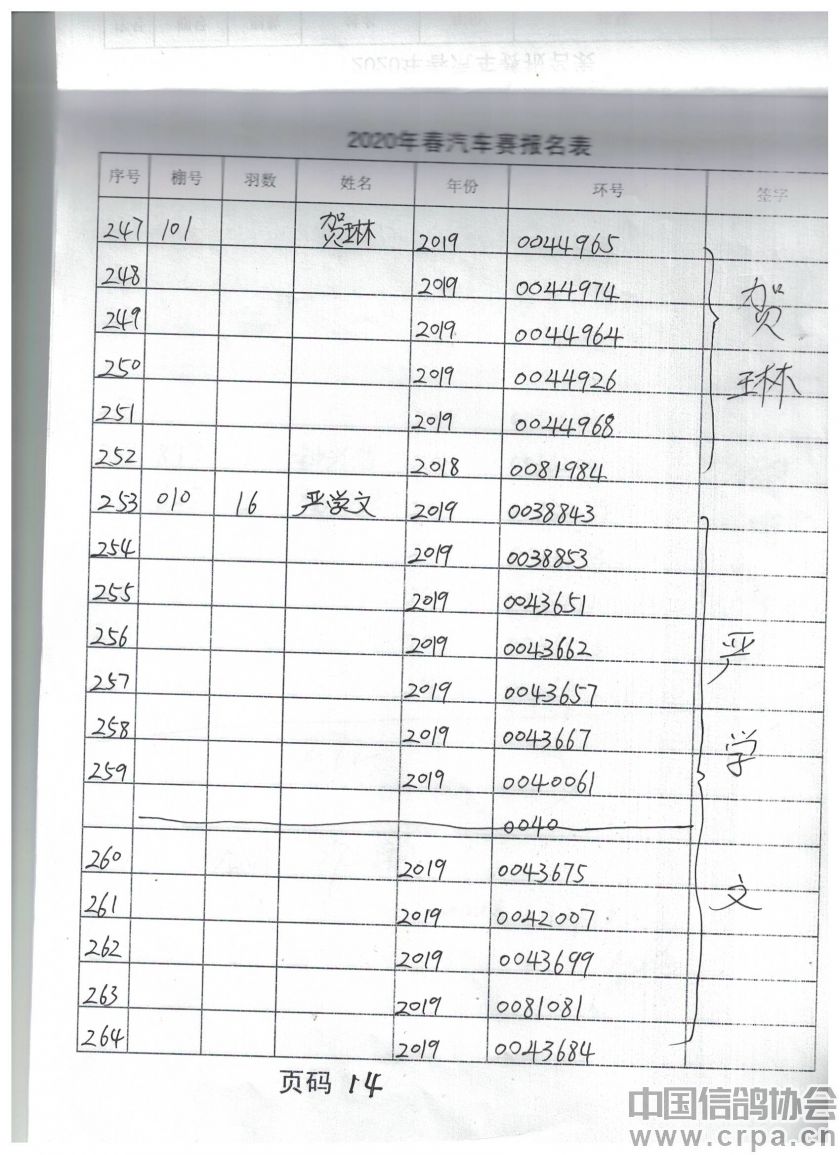 2020年春汽车赛报名表
序号 棚号 羽数 姓名 年份 环号 签字
247 101 贺琳 2019 0044965
248 2019 0044974
249 2019 0044964
250 2019 0044926
251 2019 0044968
252 2018 0081984
贺琳
253 010 16 严学文 2019 0038843
254 2019 0038853
255 2019 0043651
256 2019 0043662
257 2019 0043657
258 2019 0043667
259 2019 0040061
0040
260 2019 0043675
261 2019 0042007
262 2019 0043699
263 2019 0081081
264 2019 0043684
严学文
页码 14
中国信鸽协会
www.crpa.cn